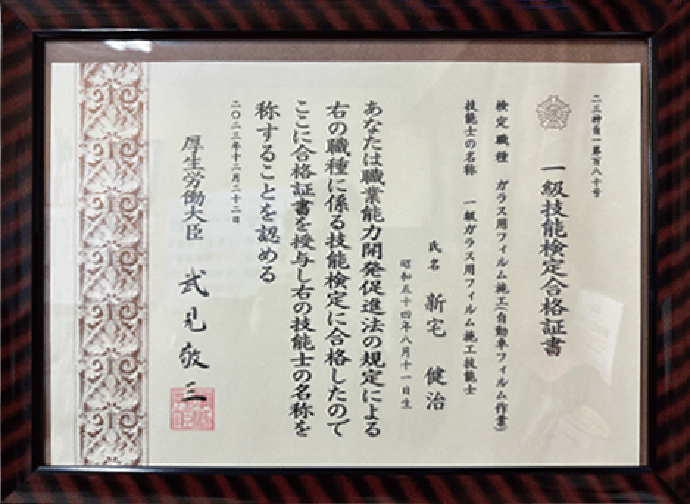 二三神自一第百八十号
一級技能検定合格証書
検定職種　ガラス用フィルム施工(自動車フィルム作業)
技能士の名称　一級ガラス用フィルム施工技能士
氏名　新宅　健治
昭和五十四年八月十一日生
あなたは職業能力開発促進法の規定による
右の職種に係る技能検定に合格したので
ここに合格証書を授与し右の技能士の名称を
称することを認める
二〇二三年十二月二十二日
厚生労働大臣　武見敬三